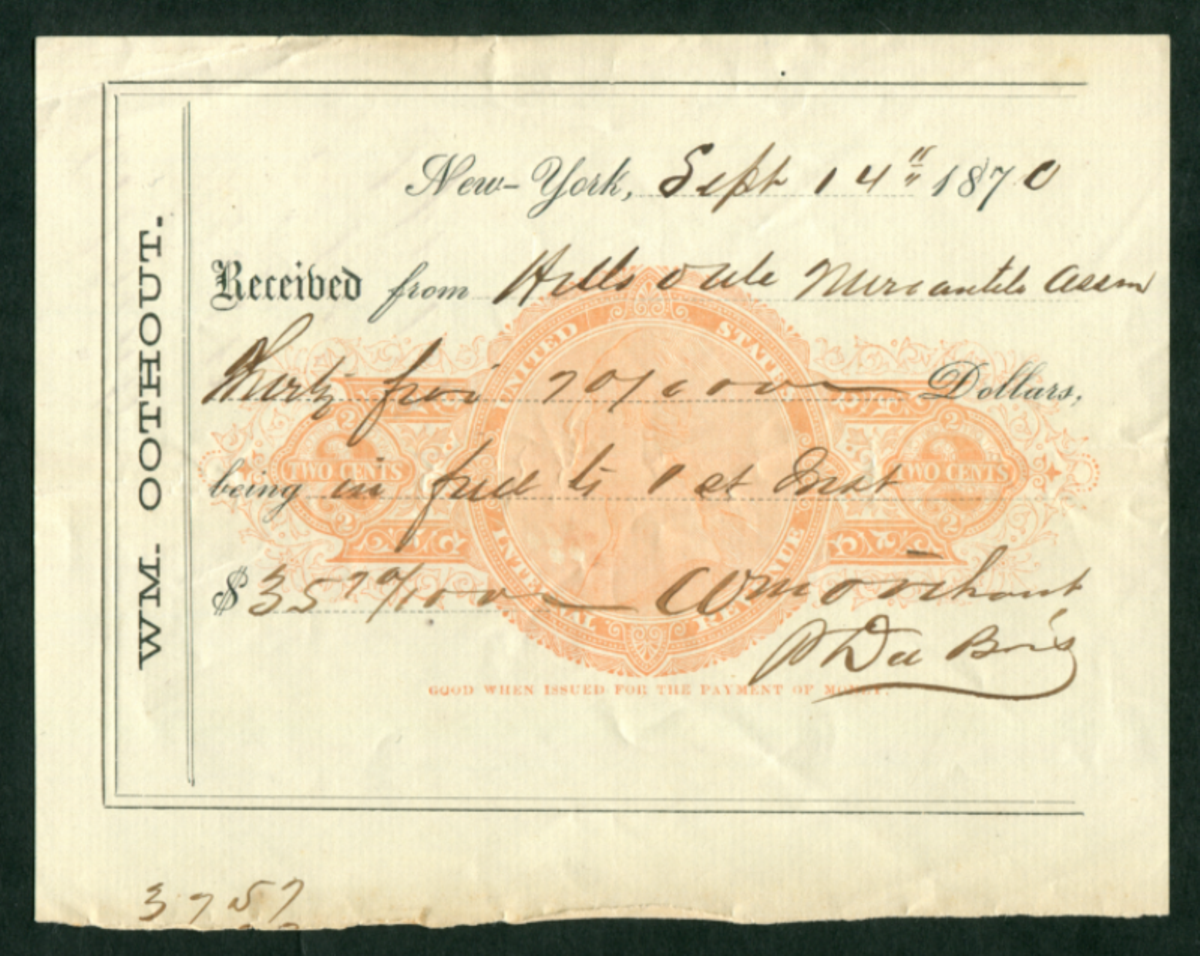 WM. OOTHOUT.
New-York, Sept 14" 1870
Received from Hillsdale Mercantile Assn
Thirty five 70/100 Dollars,
being in full to 1st Inst
$35 70/100 Wm Oothout
Du Bois
UNITED STATES
TWO CENTS
TWO CENTS
INTERNAL REVENUE
GOOD WHEN ISSUED FOR THE PAYMENT OF MONEY.
3757